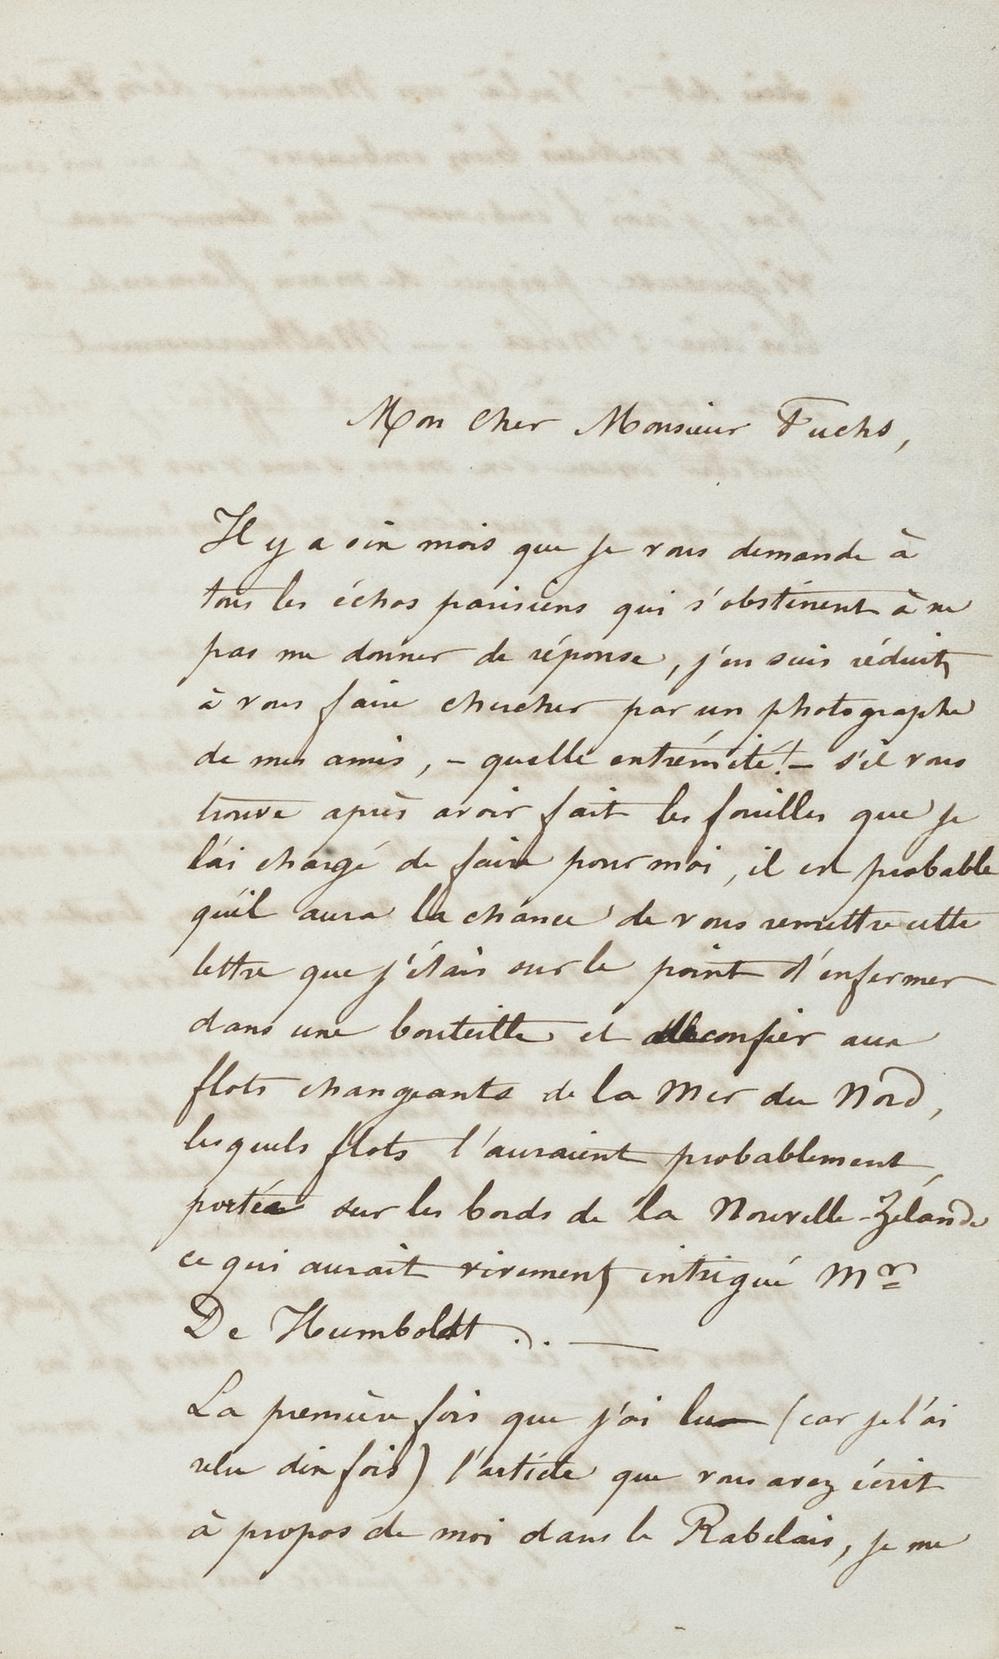 Mon cher Monsieur Fuchs,
Il y a six mois que je vous demande à
tous les échos parisiens qui s'obstinent à ne
pas me donner de réponse, j'en suis réduit
à vous faire chercher par un photographe
de mes amis, – quelle extrémité! – s'il vous
trouve après avoir fait les fouilles que je
l'ai chargé de faire pour moi, il est probable
qu'il aura la chance de vous remettre cette
lettre que j'étais sur le point d'enfermer
dans une bouteille et confier aux
flots changeants de la Mer du Nord,
lesquels flots l'auraient probablement
portée sur les bords de la Nouvelle-Zélande
ce qui aurait vivement intrigué Mr
De Humboldt ... —
La première fois que j'ai lu (car je l'ai
relu dix fois) l'article que vous avez écrit
à propos de moi dans le Rabelais, je me